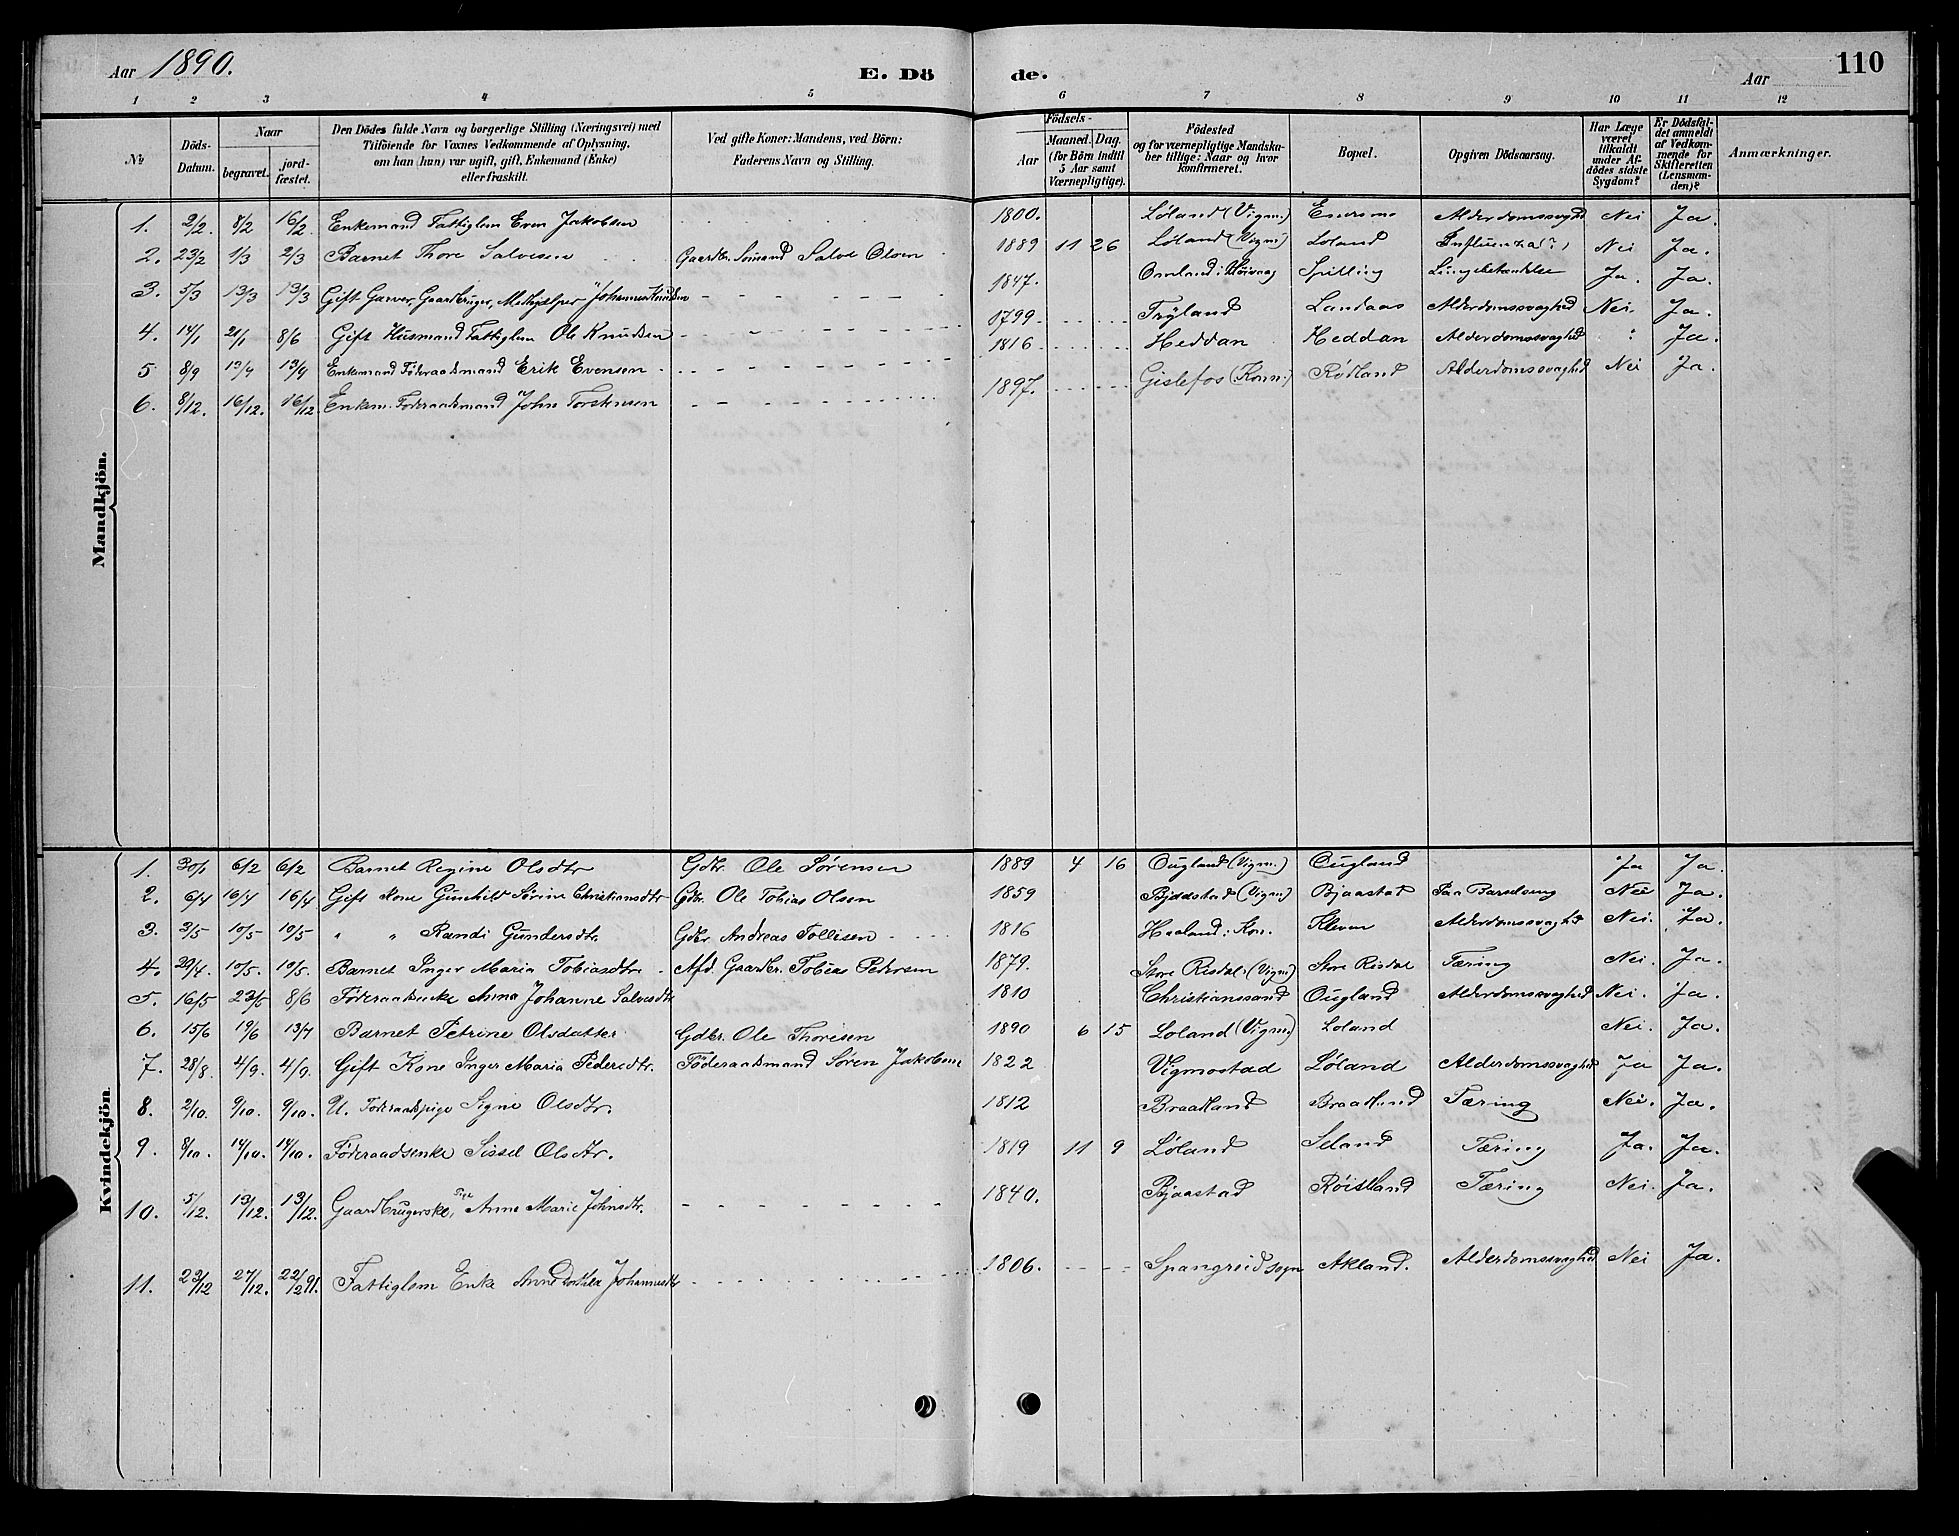 Aar 1890. E. Dö de. Aar 110
1 2 3 4 5 6 7 8 9 10 11 12
No
Döds-Datum.
Naar
begravet.
jord-fæstet.
Den Dödes fulde Navn og borgerlige Stilling (Næringsvei) med
Tilföiende for Voxnes Vedkommende af Oplysning,
om han (hun) var ugift, gift, Enkemand (Enke)
eller fraskilt.
Ved gifte Koner: Mandens, ved Börn:
Faderens Navn og Stilling.
Födsels-
Aar
Maaned. Dag.
(for Börn indtil
5 Aar samt
Værnepligtige).
Födested
og for værnepligtige Mandska-
ber tillige: Naar og hvor
konfirmeret.
Bopæl.
Opgiven Dödsaarsag.
Har Læge
været
tilkaldt
under Af-
dödes sidste
Sygdom?
Er Dödsfal-
det anmeldt
af Vedkom-
mende for
Skifteretten
(Lensman-
den)?
Anmærkninger.
Mandkjön.
1. 2/2. 8/2 16/2 Enkemand Fattiglem Even Jakobsen 1800. Löland (Vigm.) Alderdomssvaghed Nei Ja.
2. 23/2 1/3 2/3 Barnet Thore Salvesen Gaardbr. Sömand Salve Olsen 1889 11 26 Löland (Vigm) Loland Influenza(?) Nei Ja.
3. 5/3 13/3 13/3 Gift Garver, Gaardbruger, Medhjælper Johannes Knudsen 1847. Spilling Ja. Ja.
4. 14/1 21/1 8/6 Gift Husmand Fattiglem Ole Knudsen 1799. Tryland Landaas Alderdomssvaghed Nei. Ja.
5 8/9 13/9 13/9 Enkemand Föderaadsmand Erik Evensen 1816 Heddan Heddan Alderdomssvaghed " Ja.
6. 8/12. 16/12. 16/12 Enkem. Föderaadsmand John Torstensen 1897. Gislefos (Konn.) Rödland Alderdomssvaghed Nei Ja.
Kvindekjön
1. 30/1 6/2 6/2 Barnet Regine Olsdtr Gdbr. Ole Sörensen 1889 4 16 Ougland (Vigm.) Ougland Ja Ja.
2. 6/4 16/4 16/4 Gift Kone Gunhild Sörine Christiansdtr Gdbr. Ole Tobias Olsen 1859 Bjaastad (Vigm) Bjaastad Paa Barselseng Nei Ja.
3. 3/5 10/5 10/5 " " Randi Gundersdtr. Gdbr. Andreas Tollisen 1816 Haaland i Kon. Kleven Alderdomssvaghed Nei. Ja.
4. 29/4. 10/5. 10/5. Barnet Inger Maria Tobiasdtr. Afd. Gaardbr. Tobias Pedersen 1879. Store Risdal (Vigm) Store Risdal Tæring Nei. Ja.
5. 16/5 23/5 8/6 Föderaadsenke Anna Johanne Salvesdtr 1810 Christianssand Ougland Alderdomssvaghed Nei. Ja.
6. 15/6 19/6 13/7 Barnet Petrine Olsdatter Gdbr. Ole Thoresen 1890 6 15 Loland (Vigm.) Loland Nei. Ja.
7. 28/8. 4/9. 4/9. Gift Kone Inger Maria Pedersdtr. Föderaadsmand Sören Jakobsen 1822 Vigmostad Löland Alderdomssvaghed Ja Ja.
8. 2/10. 9/10. 9/10. U. Föderaadspige Signe Olsdtr. 1812 Braadland Braadland Tæring Nei. Ja.
9. 8/10. 14/10. 14/10. Föderaadsenke Sissel Olsdtr. 1819 11 9 Löland Seland Tæring Ja. Ja.
10. 5/12. 13/12. 13/12. Gaardbrugerske, Pige Anne Marie Johnsdtr. 1840. Bjaastad Röisland Tæring Nei. Ja.
11. 23/12 27/12. 22/2 91. Fattiglem Enke Johannesdtr 1806. Spangreid sogn Akland. Alderdomssvaghed Nei Ja.